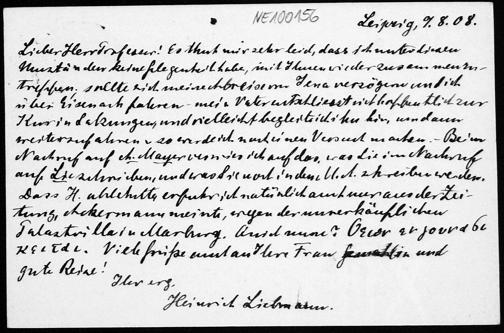 NE100156
Leipzig, 9.8.08.
Lieber Herr Professor! Es thut mir sehr leid, dass ich unter diesen
Umständen keine Gelegenheit habe, mit Ihnen wieder zusammenzu-
treffen. Sollte sich meine von Jena und ich
über Eisenach fahren - mein Vater entschliesst sich hoffentlich zur
Kur in Salzungen, und vielleicht begleite ich ihn hin, um dann
weiterzufahren so werde ich noch einen Versuch machen. - Beim
Nachruf auf A. Mayer verwies ich auf das, was Sie im Nachruf
auf Lie schrieben, und was Sie dort in den M. A. schreiben werden.
Dass H. ablehnte, erfuhr ich natürlich aus der Zei-
tung, Ackermann meinte, wegen der unverkäuflichen
Palastvilla in Marburg. Quid nunc? Θεων εν γουνασι
κειται. Viele Grüße an Ihre Frau und
gute Reise!
Ihr erg.
Heinrich Liebmann.